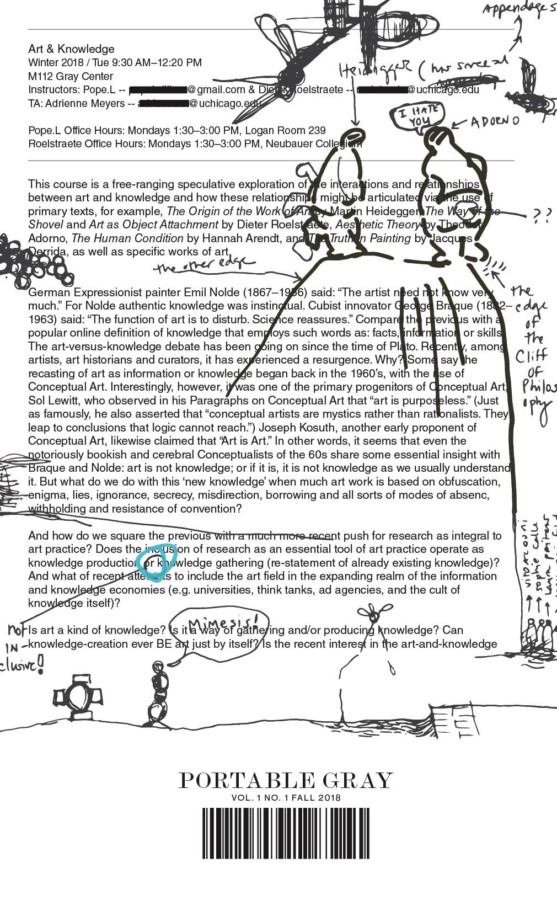 Appendages
Art & Knowledge
Winter 2018 / Tue 9:30 AM–12:20 PM
M112 Gray Center
Instructors: Pope.L -- @gmail.com & Die oelstraete -- @uchicago.edu
TA: Adrienne Meyers -- @uchicago.edu
Heidegger (has
I HATE
YOU
ADORNO
Pope.L Office Hours: Mondays 1:30–3:00 PM, Logan Room 239
Roelstraete Office Hours: Mondays 1:30–3:00 PM, Neubauer Collegium
This course is a free-ranging speculative exploration of the interactions and relationships
between art and knowledge and how these relationships might be articulated via the use of
primary texts, for example, The Origin of the Work of Art by Martin Heidegger, The Way of the
Shovel and Art as Object Attachment by Dieter Roelstraete, Aesthetic Theory by Theodor
Adorno, The Human Condition by Hannah Arendt, and The Truth in Painting by Jacques
Derrida, as well as specific works of art.
??
the other edge
the
edge
of
the
Cliff
of
Philos
ophy
German Expressionist painter Emil Nolde (1867–1956) said: “The artist need not know very
much.” For Nolde authentic knowledge was instinctual. Cubist innovator George Braque (1882–
1963) said: “The function of art is to disturb. Science reassures.” Compare the previous with a
popular online definition of knowledge that employs such words as: facts, information or skills.
The art-versus-knowledge debate has been going on since the time of Plato. Recently, among
artists, art historians and curators, it has experienced a resurgence. Why? Some say the
recasting of art as information or knowledge began back in the 1960’s, with the rise of
Conceptual Art. Interestingly, however, it was one of the primary progenitors of Conceptual Art,
Sol Lewitt, who observed in his Paragraphs on Conceptual Art that “art is purposeless.” (Just
as famously, he also asserted that “conceptual artists are mystics rather than rationalists. They
leap to conclusions that logic cannot reach.”) Joseph Kosuth, another early proponent of
Conceptual Art, likewise claimed that “Art is Art.” In other words, it seems that even the
notoriously bookish and cerebral Conceptualists of the 60s share some essential insight with
Braque and Nolde: art is not knowledge; or if it is, it is not knowledge as we usually understand
it. But what do we do with this ‘new knowledge’ when much art work is based on obfuscation,
enigma, lies, ignorance, secrecy, misdirection, borrowing and all sorts of modes of absenc,
withholding and resistance of convention?
And how do we square the previous with a much more recent push for research as integral to
art practice? Does the inclusion of research as an essential tool of art practice operate as
knowledge production or knowledge gathering (re-statement of already existing knowledge)?
And what of recent attempts to include the art field in the expanding realm of the information
and knowledge economies (e.g. universities, think tanks, ad agencies, and the cult of
knowledge itself)?
not
IN
clusive!
Mimesis!
Is art a kind of knowledge? Is it a way of gathering and/or producing knowledge? Can
knowledge-creation ever BE art just by itself? Is the recent interest in the art-and-knowledge
PORTABLE GRAY
VOL. 1 NO. 1 FALL 2018